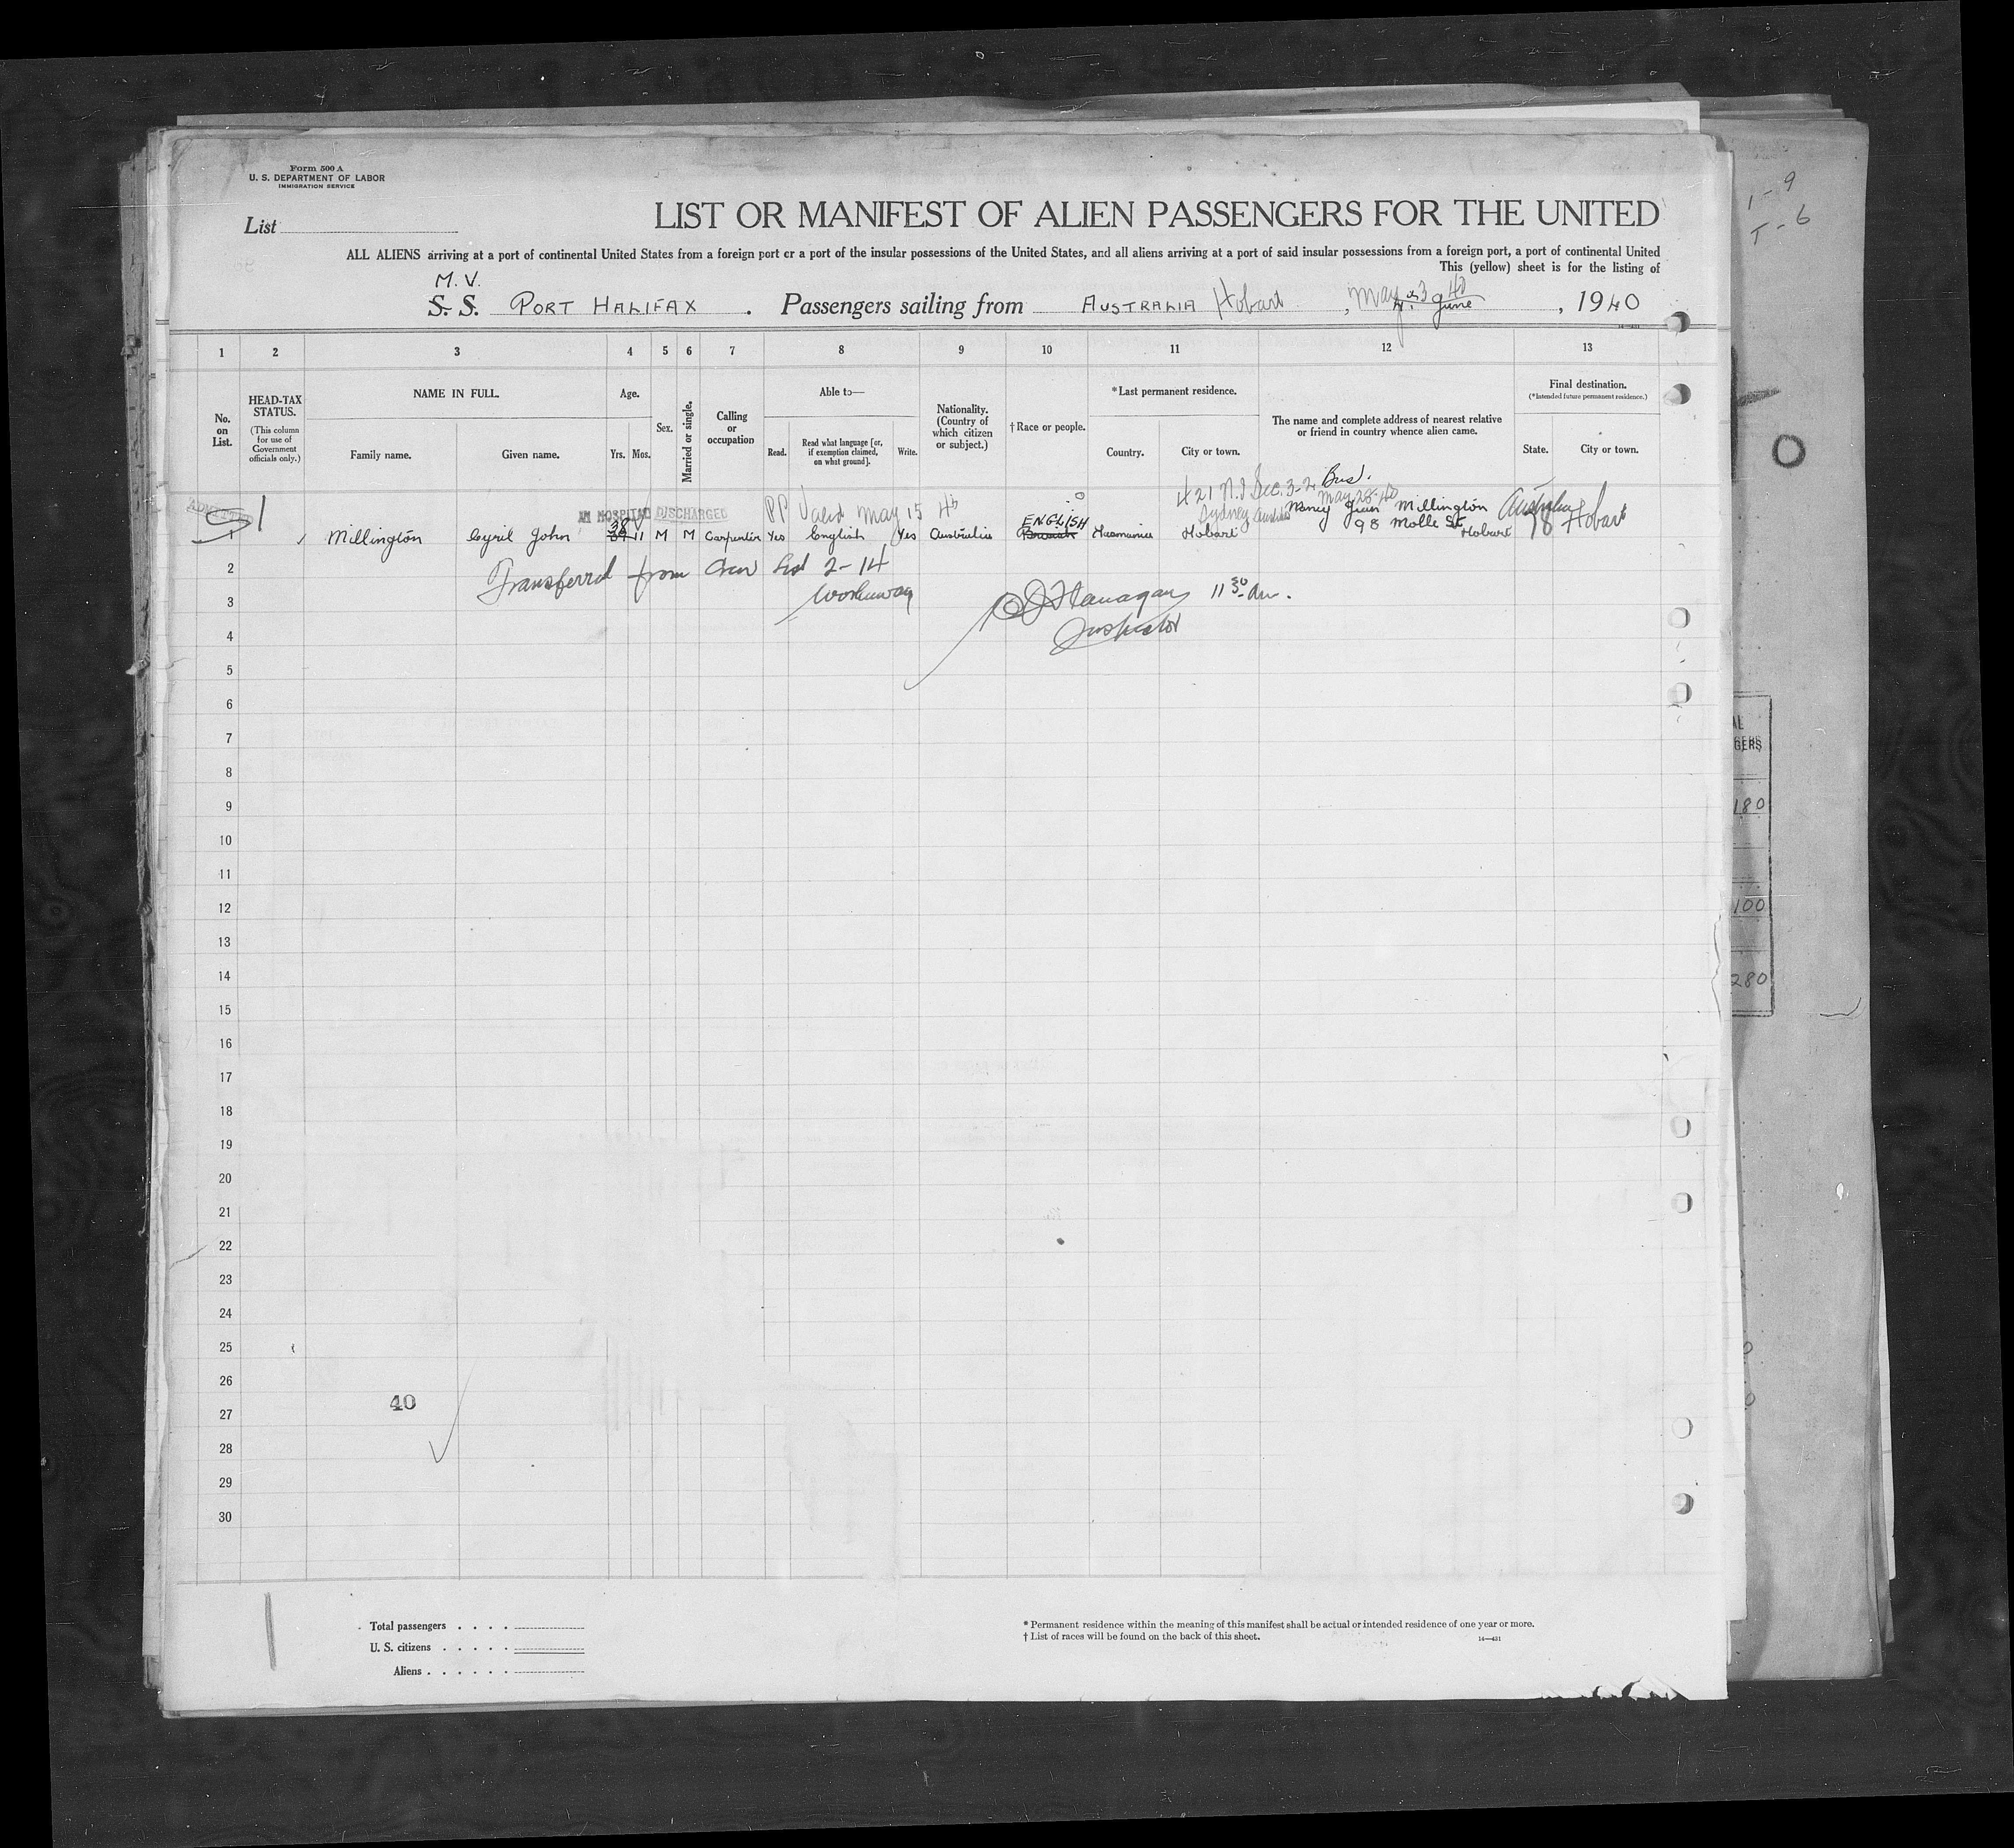 Form 500 A
U. S. DEPARTMENT OF LABOR
IMMIGRATION SERVICE
1-9
T-6
List
LIST OR MANIFEST OF ALIEN PASSENGERS FOR THE UNITED
ALL ALIENS arriving at a port of continental United States from a foreign port or a port of the insular possessions of the United States, and all aliens arriving at a port of said insular possessions from a foreign port, a port of continental United
This (yellow) sheet is for the listing of
M. V.
S. S. PORT HALIFAX . Passengers sailing from AUSTRALIA Hobart , May 3 40 June , 1940
1 2 3 4 5 6 7 8 9 10 11 12 13
No. on List.
HEAD-TAX STATUS.
(This column for use of Government officials only.)
NAME IN FULL.
Family name. Given name.
Age.
Yrs. Mos.
Sex.
Married or single.
Calling or occupation
Able to—
Read. Read what language [or, if exemption claimed, on what ground]. Write.
Nationality. (Country of which citizen or subject.)
† Race or people.
*Last permanent residence.
Country. City or town.
The name and complete address of nearest relative or friend in country whence alien came.
Final destination.
(*Intended future permanent residence.)
State. City or town.
ADMITTED
421 N.I Sec. 3-2. Bus.
HOSPITAL DISCHARGED PP Valid May 15 40
Sydney May 28-40
1 Millington Cyril John 38 11 M M Carpenter Yes English Yes Australia ENGLISH Tasmania Hobart Millington 98 Molle St Hobart Australia Hobart
2 Transferred from Crew List 2-14
3 Workaway Flanagan 11 30 am.
4 Inspector
5
6
7
8
9
10
11
12
13
14
15
16
17
18
19
20
21
22
23
24
25
26
27
28
29
30
40
GERS
180
100
280
Total passengers
U. S. citizens
Aliens
* Permanent residence within the meaning of this manifest shall be actual or intended residence of one year or more.
† List of races will be found on the back of this sheet.
14—431